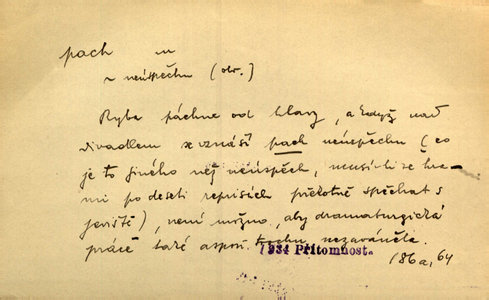 pach m
~ neúspěchu (obr.)
Ryba páchne od hlavy, a když nad
divadlem se vznáší pach neúspěchu (co
je to jiného než neúspěch, musí-li se hra-
mi po deseti reprisích překotně spěchat s
jeviště), není možno, aby dramaturgická
práce také aspoň trochu nezaváněla.
1934 Přítomnost.
186a, 64